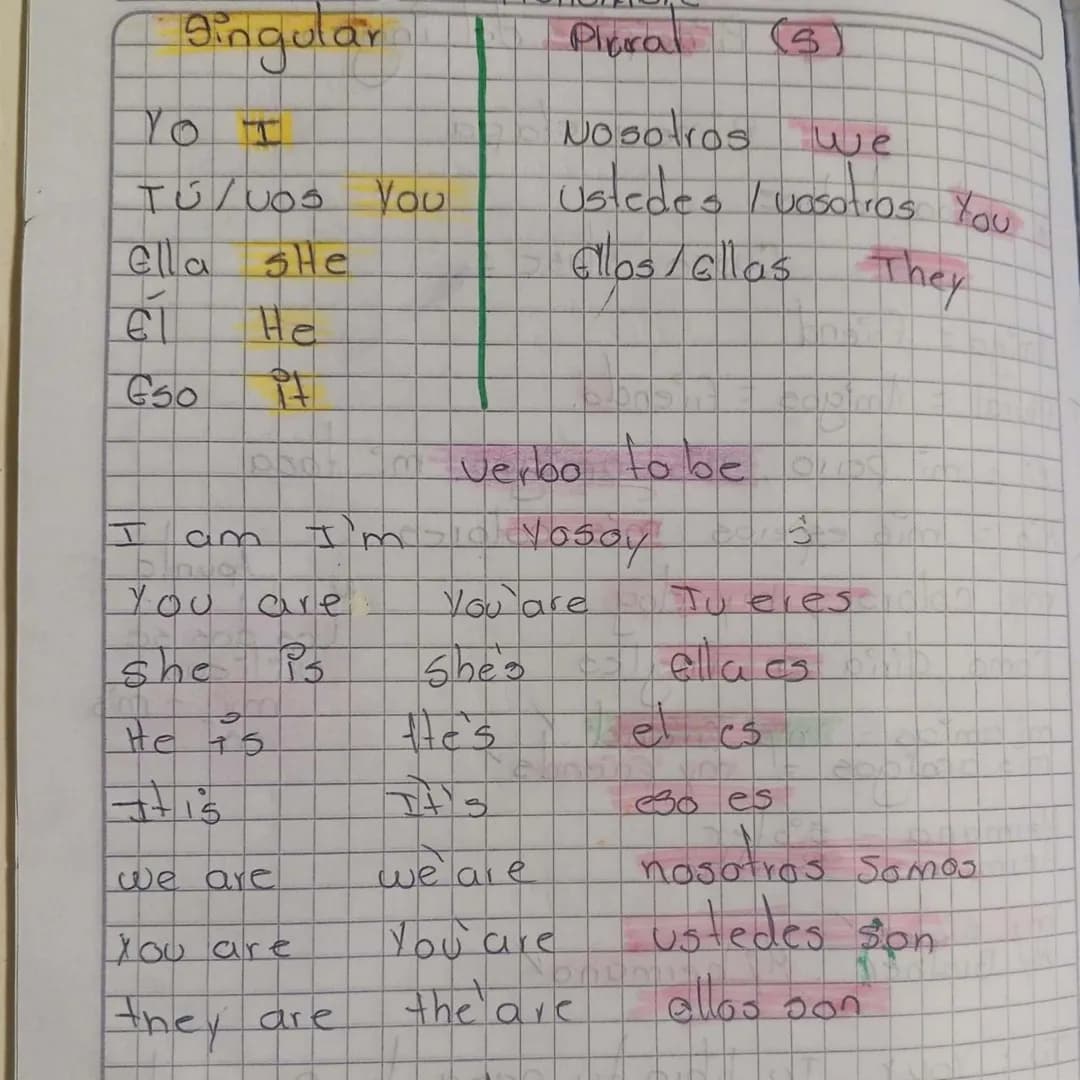 Singular Plural (s)
Yo I Nosotros we
Tú/vos You ustedes / vosotros You
ella sHe Ellos/Ellas They
Él He
Eso it
verbo to be
I am I'm Yo soy
You are You'are Tu eres
she is she's ella es
He is He's el es
It is It's eso es
we are we'are nosotros somos
You are You'are ustedes son
they are the'are ellos son